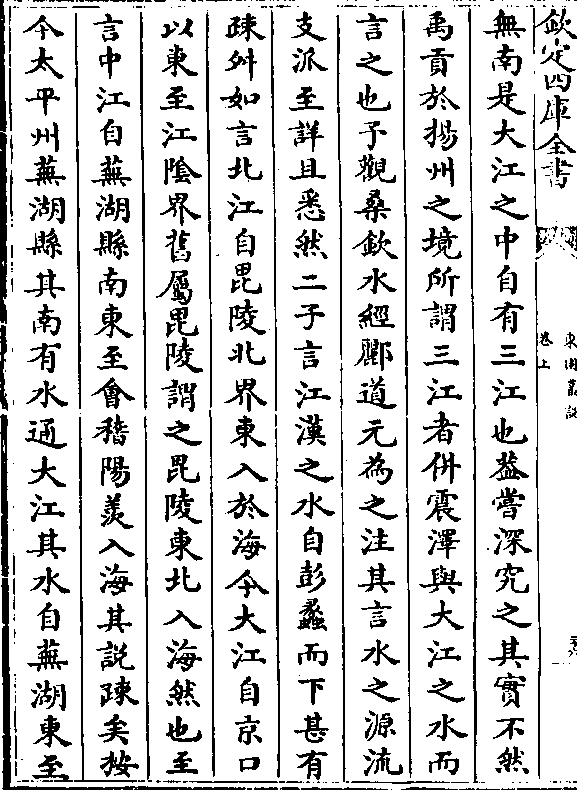 欽定四庫全書
卷上
無南是大江之中自有三江也葢嘗深究之其實不然
禹貢於揚州之境所謂三江者併震澤與大江之水而
言之也予觀桑欽水經酈道元為之注其言水之源流
支派至詳且悉然二子言江漢之水自彭蠡而下甚有
疎舛如言北江自毘陵北界東入於海今大江自京口
以東至江隂界舊屬毘陵謂之毘陵東北入海然也至
言中江自蕪湖縣南東至會稽陽羨入海其説疎矣按
今太平州蕪湖縣其南有水通大江其水自蕪湖東至